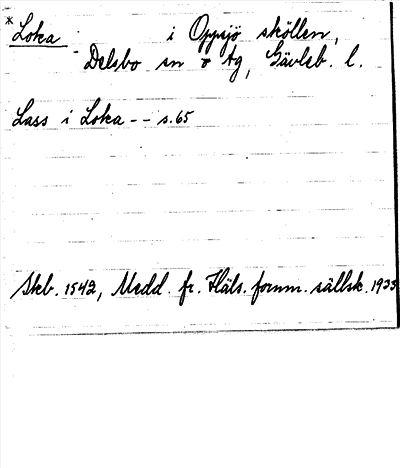 *Loka i Oppsjö sköllen,
Delsbo sn o tg, Gävleb. l.
Lass i Loka -- s. 65
Skb. 1542, Medd. fr. Häls. fornm. sällsk. 1933